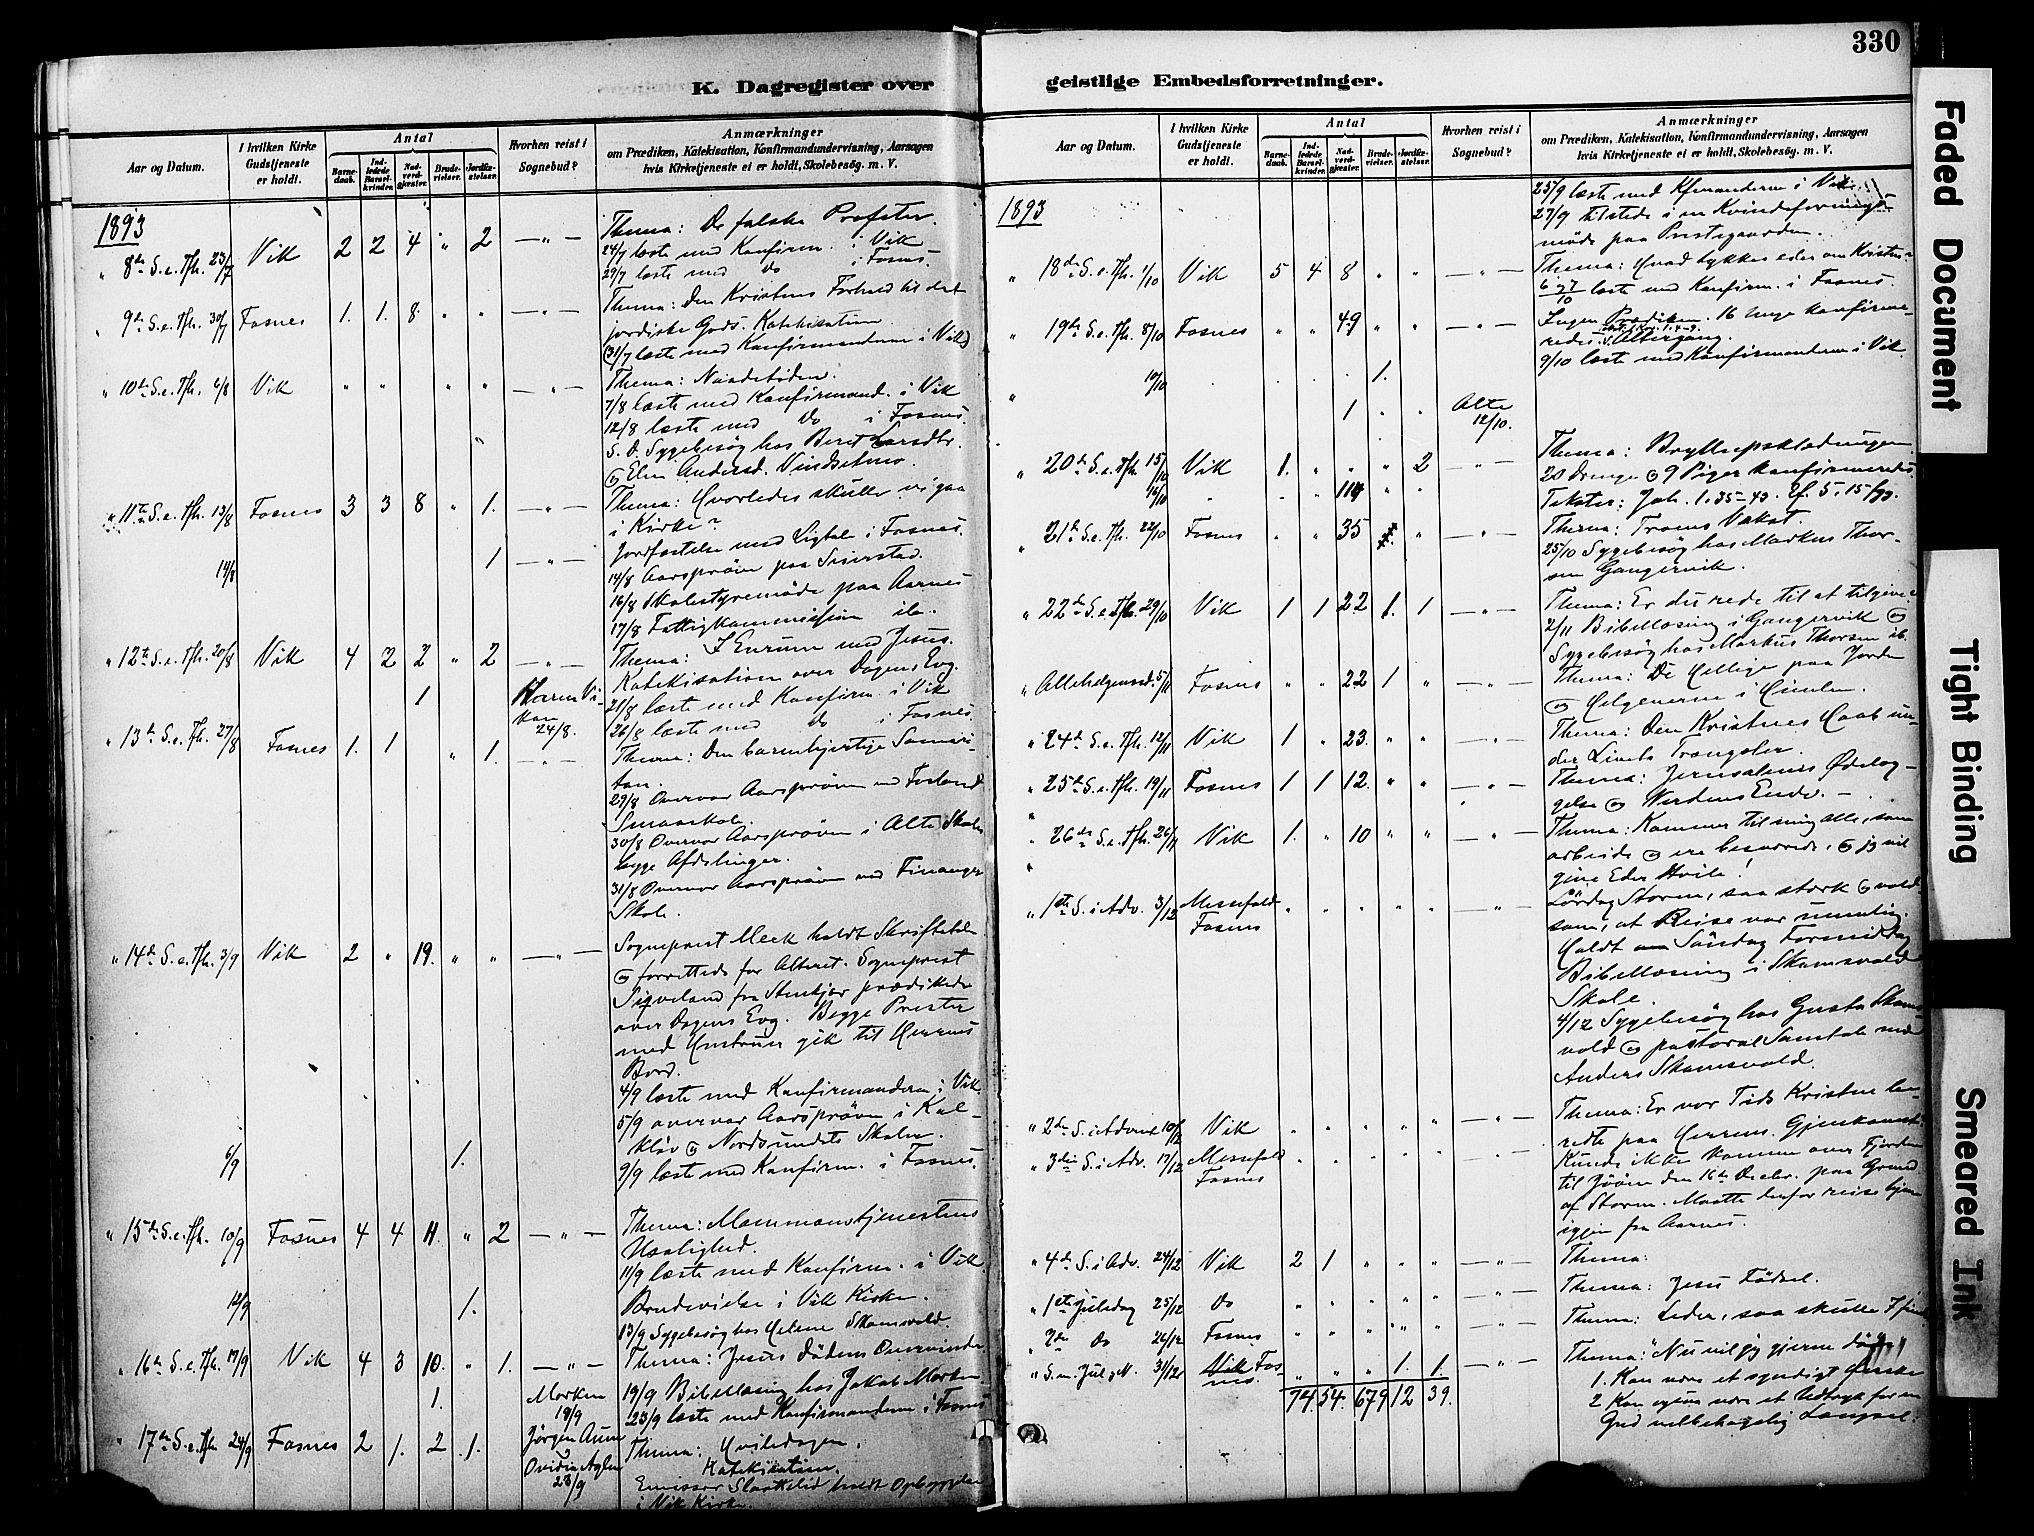 330
K. Dagregister over
geistlige Embedsforretninger.
Aar og Datum.
I hvilken Kirke Gudstjeneste er holdt.
Antal
Barnedaab.
Indledede Barselkvinder.
Nadverdgjester.
Brudevielser.
Jordfæstelser.
Hvorhen reist i Sognebud?
Anmærkninger
om Prædiken, Katekisation, Konfirmandundervisning, Aarsagen
hvis Kirketjeneste ei er holdt, Skolebesøg. m. V.
1893
" 8de S. e. Tfh. 23/7 Vik 2 2 4 " 2 — " — Thema: De falske Profeter.
24/7 læste med Konfirm. i Vik
29/7 læste med do i Fosnes
" 9de S. e. Tfh. 30/7 Fosnes 1. 1. 8. " " — " — Thema: Den Kristnes Forhold til det
jordiske Gods. Katekisation.
(31/7 læste med Konfirmanderne i Vik)
" 10de S. e. Tfh. 6/8 Vik " " " " " — " — Thema: Naadetiden.
7/8 læste med Konfirmand. i Vik
12/8 læste med do i Fosnes.
S. D. Sygebesøg hos Beret Larsdtr.
og Elen Andersd. Vindsetmo.
" 11te S. e. Tfh. 13/8 Fosnes 3 3 8 " 1. — " — Thema: Hvorledes skulle vi gaa
i Kirke?
14/8 1 — " — Jordfæstelse med Ligtale i Fosnes.
14/8 Aarsprøven paa Seierstad.
16/8 Skolestyremøde paa Aarnes
17/8 Fattigkommission ib.
" 12te S. e. Tfh. 20/8 Vik 4 2 2 " 2 — " — Thema: I Enrum med Jesus.
Katekisation over Dagens Evg.
1 24/8. 21/8 læste med Konfirm. i Vik
26/8 læste med do i Fosnes.
" 13de S. e. Tfh. 27/8 Fosnes 1. 1 " 1. — " — Thema: Den barmhjertige Samari-
tan.
29/8 Overvar Aarsprøven ved Forland
Smaaskole.
30/8 Overvar Aarsprøven i Alte Skole
begge Afdelinger.
31/8 Overvar Aarsprøven ved Finanger
Skole.
" 14de S. e. Tfh. 3/9 Vik 2 " 19. " " — " — Sogneprest Meek holdt Skriftetale
og forrettede for Alteret. Sogneprest
Sigveland fra Stenkjær prædikede
over Dagens Evg. Begge Prester
med Hustruer gik til Herrens
Bord.
4/9 læste med Konfirmanderne i Vik.
5/9 overvar Aarsprøven i Kal-
kløv og Nordsundets Skoler.
6/9 1. 9/9 læste med Konfirm. i Fosnes.
" 15de S. e. Tfh. 10/9 Fosnes 4 4 11. " 2 — " — Thema: Mammonstjenestens
Usalighed.
11/9 læste med Konfirm. i Vik.
12/9 1. Brudevielse i Vik Kirke.
13/9 Sygebesøg hos Helene Skomsvold.
" 16de S. e. Tfh. 17/9 Vik 4 3 10. " 1. — " — Thema: Jesus Dødens Overvinder
1. Morken 19/9 19/9 Bibellæsning hos Jakob Morken.
23/9 læste med Konfirmanderne i Fosnes
" 17de S. e. Tfh. 24/9 Fosnes 2 1. 2 1. Jørgen
28/9 Thema: Hviledagen.
Katekisation.
Emissær holdt Opbyggelse
i Vik Kirke.
1893
25/9 læste med Kfirmanderne i Vik.
27/9 tilstede i en Kvindeforenings-
møde paa Prestegaarden.
" 18de S. e. Tfh. 1/10 Vik 5 4 8 " " — " — Thema: Hvad tykkes eder om Kristus?
6 & 7/10 læste med Konfirm. i Fosnes.
" 19de S. e. Tfh. 8/10 Fosnes " " 49 " " — " — Ingen Prædiken. 16 Unge konfirme-
redes. Altergang.
9/10 læste med Konfirmanderne i Vik.
" 10/10 1.
1 " " Alte 12/10.
" 20de S. e. Tfh. 15/10 Vik 1. " " " 2 — " — Thema: Bryllupsklædningen
16/10 " " " 114 " " 20 Drenge og 9 Piger konfirmeredes.
Tekster: Joh. 1. 35-43. Ef. 5. 15 ffg.
" 21de S. e. Tfh. 22/10 Fosnes " " 35 " — " — Thema: Troens Vækst.
25/10 Sygebesøg hos Markus Thor-
sen Gangervik.
" 22de S. e. Tfh. 29/10 Vik 1 1 22 1. 1 — " — Thema: Er du rede til at tilgive?
2/11 Bibellæsning i Gangervik og
Sygebesøg hos Markus Thorsen ib.
" Allehelgensd. 5/11 Fosnes " " 22 1 " — " — Thema: De Hellige paa Jorden
og Helgenerne i Himlen.
" 24de S. e. Tfh. 12/11 Vik 1 " 23. " " — " — Thema: Den Kristnes Haab un-
der Livets Trængsler.
" 25de S. e. Tfh. 19/11 Fosnes 1 1 12. " " — " — Thema: Jerusalems Ødelæg-
gelse og Verdens Ende. —
" 26de S. e. Tfh. 26/11 Vik 1. " 10 " " — " — Thema: Kommer til mig alle, som
arbeide og ere besværede, og jeg vil
give Eder Hvile!
" 1ste S. i Adv. 3/12 Messefald Fosnes " " " " " — " — Lørdag Storm, saa stærk og vold-
som, at Reise var umulig.
Holdt om Søndag Formiddag
Bibellæsning i Skomsvold
Skole.
4/12 Sygebesøg hos Gusta Skoms-
vold og pastoral Samtale med
Anders Skomsvold.
" 2de S. i Advent 10/12 Vik " " " " " — " — Thema: Er vor Tids Kristne be-
redte paa Herrens Gjenkomst.
" 3die S. i Adv. 17/12 Messefald Fosnes " " " " " Kunde ikke komme over Fjorden
til Jøøen den 16de Decbr. paa Grund
af Storm. Maatte derfor reise hjem
igjen fra Aarnes.
" 4de S. i Adv. 24/12 Vik 2 1 " " " — " — Thema:
" 1ste Juledag 25/12 do " " " " " — " — Thema: Jesu Fødsel.
" 2den do 26/12 Fosnes " " " " " — " — Thema: Leder, saa skulle I finde
" S. m. Jul og N. 31/12 Fosnes. " " " 1. 1. — " — Thema: "Nu vil jeg gjerne dø"
1. Kan være et syndigt Ønske
2 Kan ogsaa være et Udtryk for en
Gud velbehagelig Længsel.
74. 54. 679 12 39.
Faded Document
Tight Binding
Smeared Ink